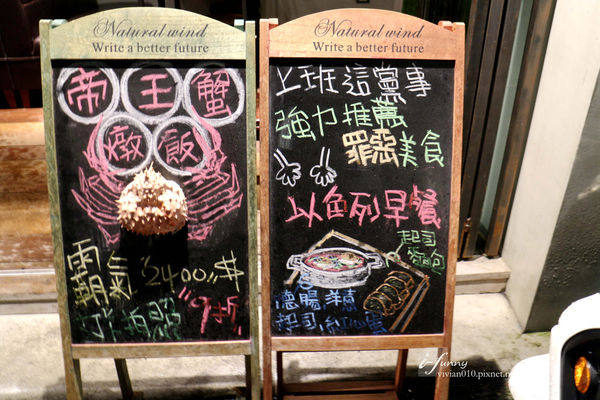 Natural wind
Write a better future
帝王蟹
燉飯
霸氣 2400元$
"9折
打拍照
Natural wind
Write a better future
上班這黨事
強力推薦
罪惡美食
以色列早餐
起司
麵包
德腸洋蔥
起司紅椒蛋
t-funny
vivian010.pixnet.n